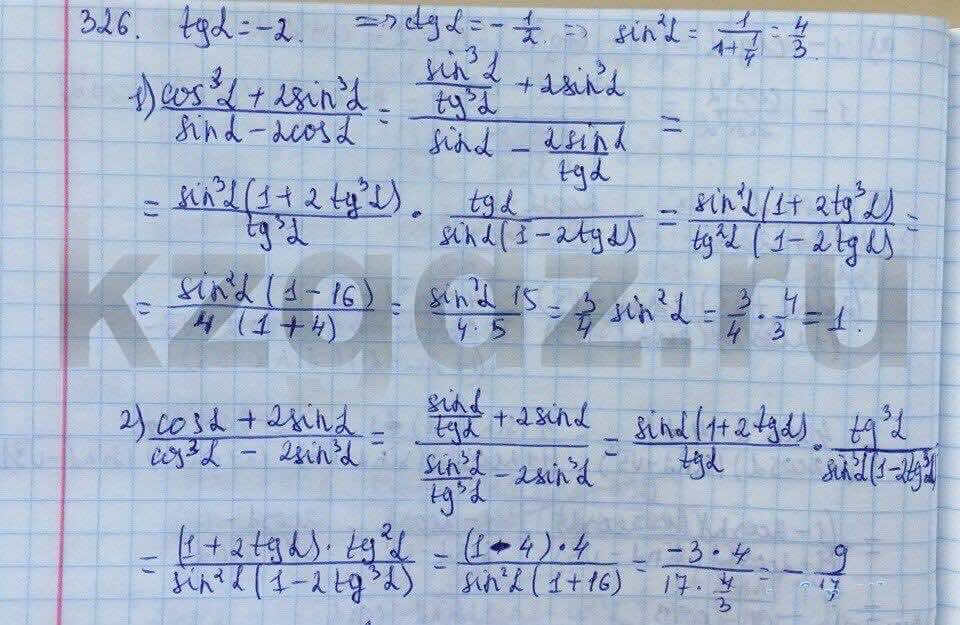 326. tgα = -2. => ctgα = -1/2 => sin²α = 1/(1+1/4) = 4/3.
1) (cos³α + 2sin³α)/(sinα - 2cosα) = (sin³α/tg³α + 2sin³α)/(sinα - 2sinα/tgα) =
= sin³α(1 + 2tg³α)/tg³α · tgα/(sinα(1 - 2tgα)) = sin²α(1 + 2tg³α)/(tg²α(1 - 2tgα)) =
= sin²α(1 - 16)/(4(1 + 4)) = sin²α 15/(4·5) = 3/4 sin²α = 3/4 · 4/3 = 1.
kzgdz.ru
2) (cosα + 2sinα)/(cos³α - 2sin³α) = (sinα/tgα + 2sinα)/(sin³α/tg³α - 2sin³α) = sinα(1 + 2tgα)/tgα · tg³α/(sin³α(1 - 2tg³α))
= (1 + 2tgα)·tg²α/(sin²α(1 - 2tg³α)) = (1 - 4)·4/(sin²α(1 + 16)) = -3·4/(17·4/3) = -9/17.